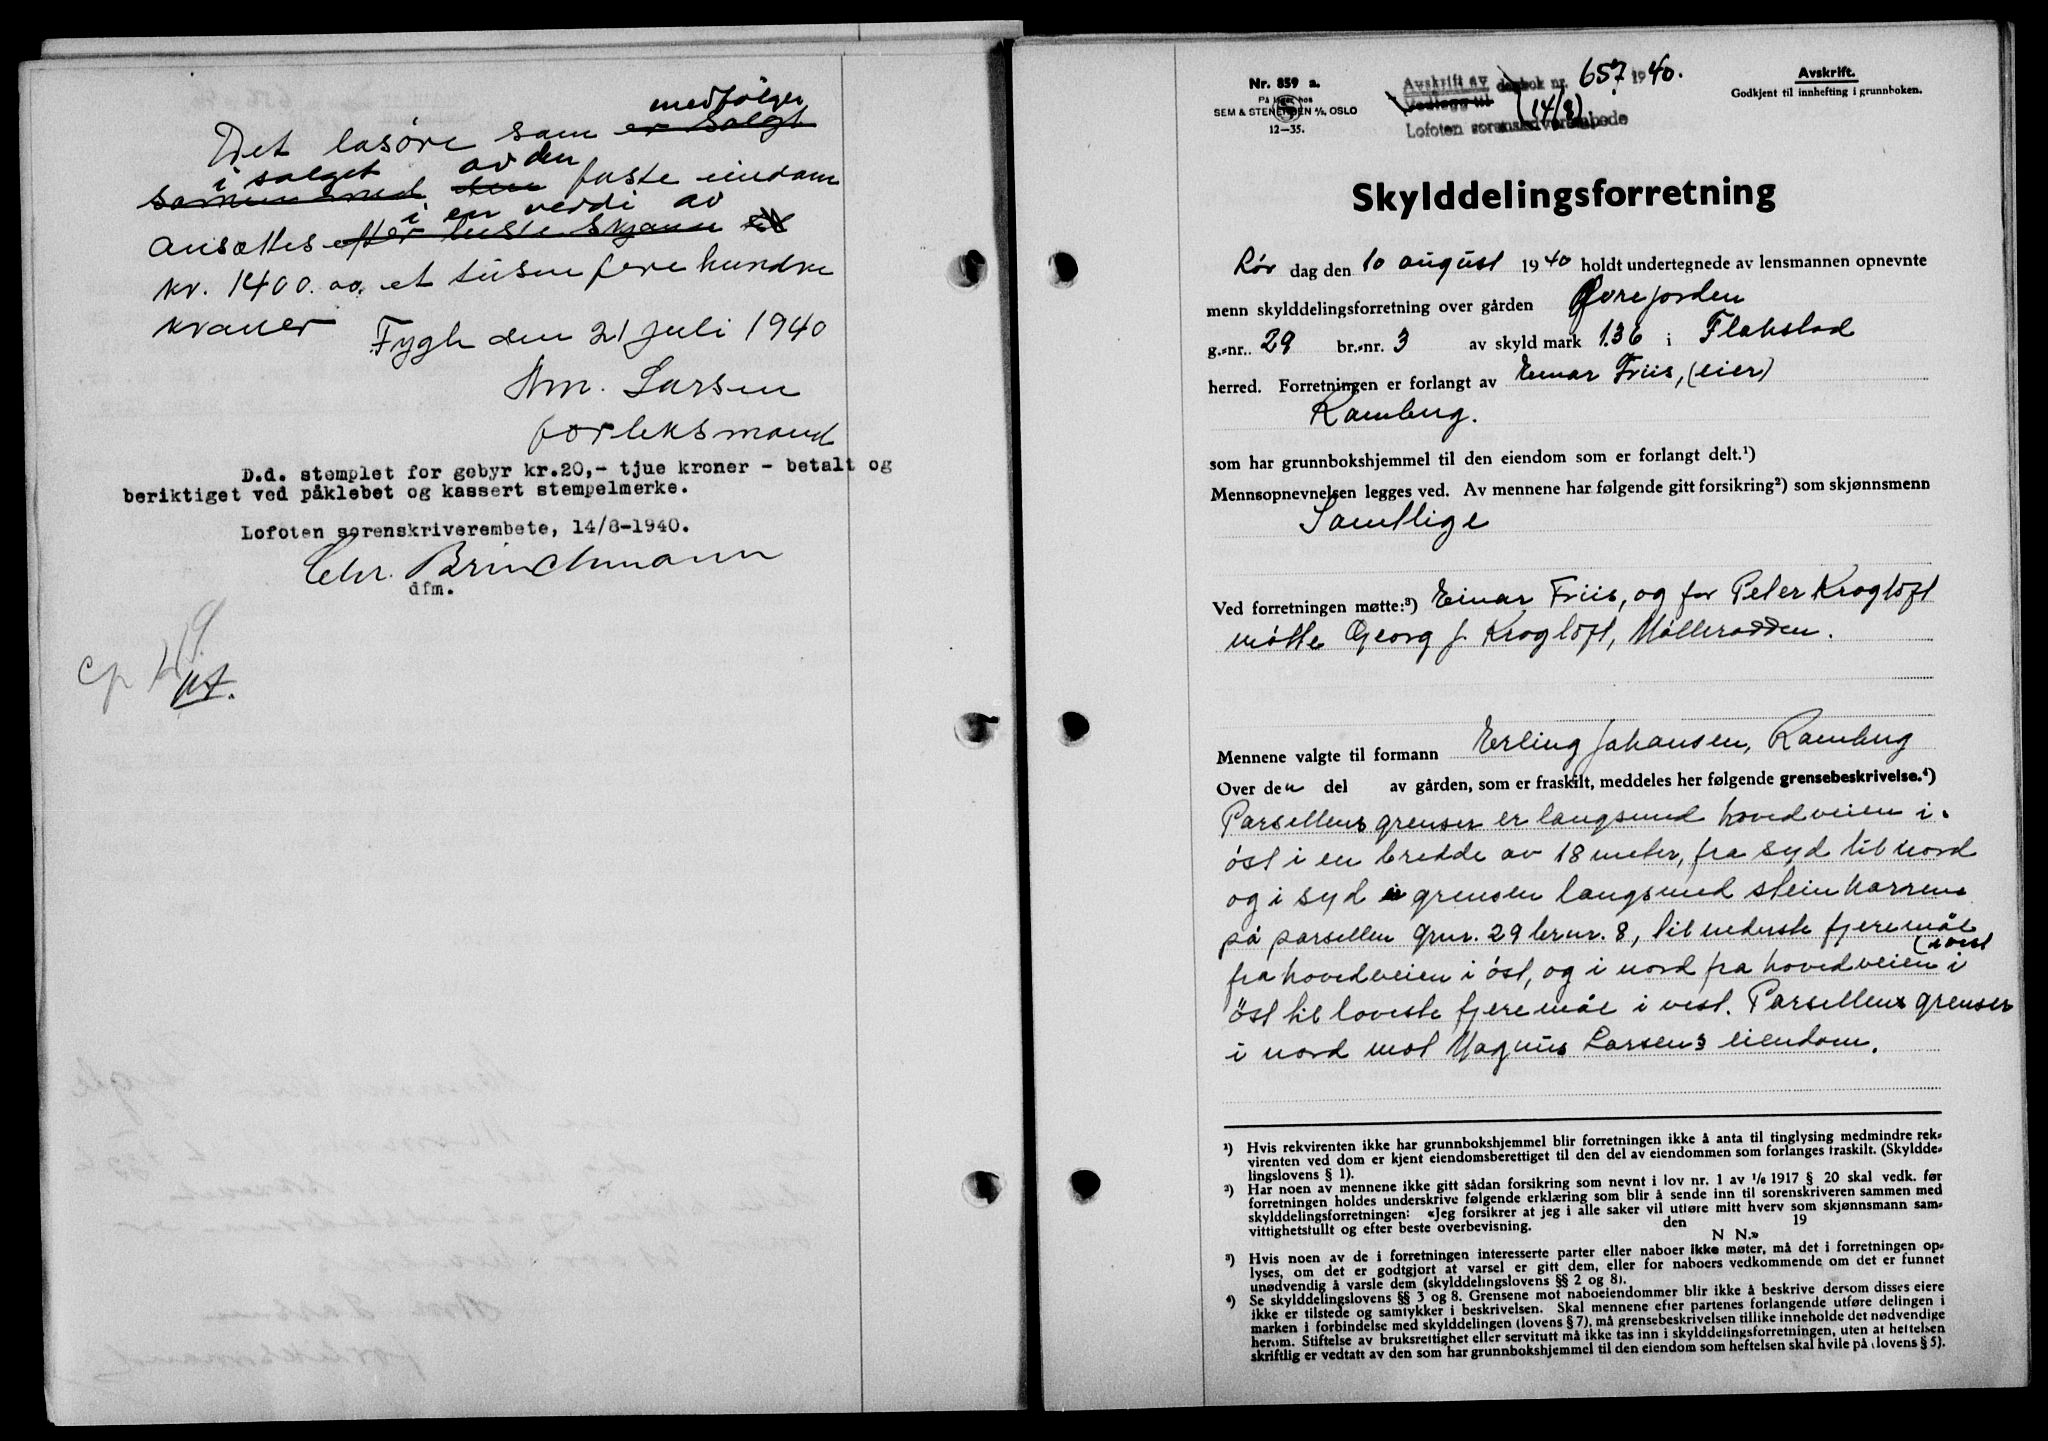 Det løsøre som medfølger
~~er solgt~~
i salget av den faste eiendom
~~sammen med den~~
i en verdi av
ansættes ~~efter beste skjønn til~~
kr. 1400.00. et tusen fire hundre
kroner
Fygle den 21 juli 1940
Am. Larsen
forliksmand
D.d. stemplet for gebyr kr.20,- tjue kroner - betalt og
beriktiget ved påklebet og kassert stempelmerke.
Lofoten sorenskriverembete, 14/8-1940.
Chr. Brinchmann
dfm.
Nr. 859 a.
På lager hos
SEM & STENERSEN A/S, OSLO
12—35.
Avskrift av dagbok nr. 657 1940.
~~Vedlegg til~~ (14/8)
Lofoten sorenskriverembede
Avskrift.
Godkjent til innhefting i grunnboken.
Skylddelingsforretning
Lør dag den 10 august 1940 holdt undertegnede av lensmannen opnevnte
menn skylddelingsforretning over gården Øvrejorden
g.-nr. 29 br.-nr. 3 av skyld mark 1.36 i Flakstad
herred. Forretningen er forlangt av Einar Friis, (eier)
Ramberg.
som har grunnbokshjemmel til den eiendom som er forlangt delt.¹)
Mennsopnevnelsen legges ved. Av mennene har følgende gitt forsikring²) som skjønnsmenn
Samtlige
Ved forretningen møtte:³) Einar Friis, og for Peter Krogtoft
møtte Georg J. Krogtoft, Mølleradden.
Mennene valgte til formann Erling Johansen, Ramberg
Over den del av gården, som er fraskilt, meddeles her følgende grensebeskrivelse.⁴)
Parsellens grenser er langsmed hovedveien i
øst i en bredde av 18 meter, fra syd til nord
og i syd grensen langsmed steinharren
på parsellen gnr. 29 brnr. 8, til nederste fjæremål
(i vest
fra hovedveien i øst, og i nord fra hovedveien i
øst til laveste fjæremål i vest. Parsellens grenser
i nord mot Magnus Larsens eiendom.
¹) Hvis rekvirenten ikke har grunnbokshjemmel blir forretningen ikke å anta til tinglysing medmindre rek-
virenten ved dom er kjent eiendomsberettiget til den del av eiendommen som forlanges fraskilt. (Skyldde-
lingslovens § 1).
²) Har noen av mennene ikke gitt sådan forsikring som nevnt i lov nr. 1 av 1/6 1917 § 20 skal vedk. før
forretningen holdes underskrive følgende erklæring som blir å sende inn til sorenskriveren sammen med
skylddelingsforretningen: «Jeg forsikrer at jeg i alle saker vil utføre mitt hverv som skjønnsmann sam-
vittighetsfullt og efter beste overbevisning. den 19
N N.»
³) Hvis noen av de i forretningen interesserte parter eller naboer ikke møter, må det i forretningen op-
lyses, om det er godtgjort at varsel er gitt dem, eller for naboers vedkommende om det er funnet
unødvendig å varsle dem (skylddelingslovens §§ 2 og 8).
⁴) Se skylddelingslovens §§ 3 og 8. Grensene mot naboeiendommer blir ikke å beskrive dersom disses eiere
ikke er tilstede og samtykker i beskrivelsen. Skal mennene efter partenes forlangende utføre delingen i
marken i forbindelse med skylddelingen (lovens § 7), må grensebeskrivelsen tillike inneholde det nødvendige
herom. Stiftelse av bruksrettighet eller servitutt må ikke tas inn i skylddelingsforretningen, uten at heftelsen
skriftlig er vedtatt av den som har grunnbokshjemmel til den eiendom som heftelsen skal hvile på (lovens § 5).